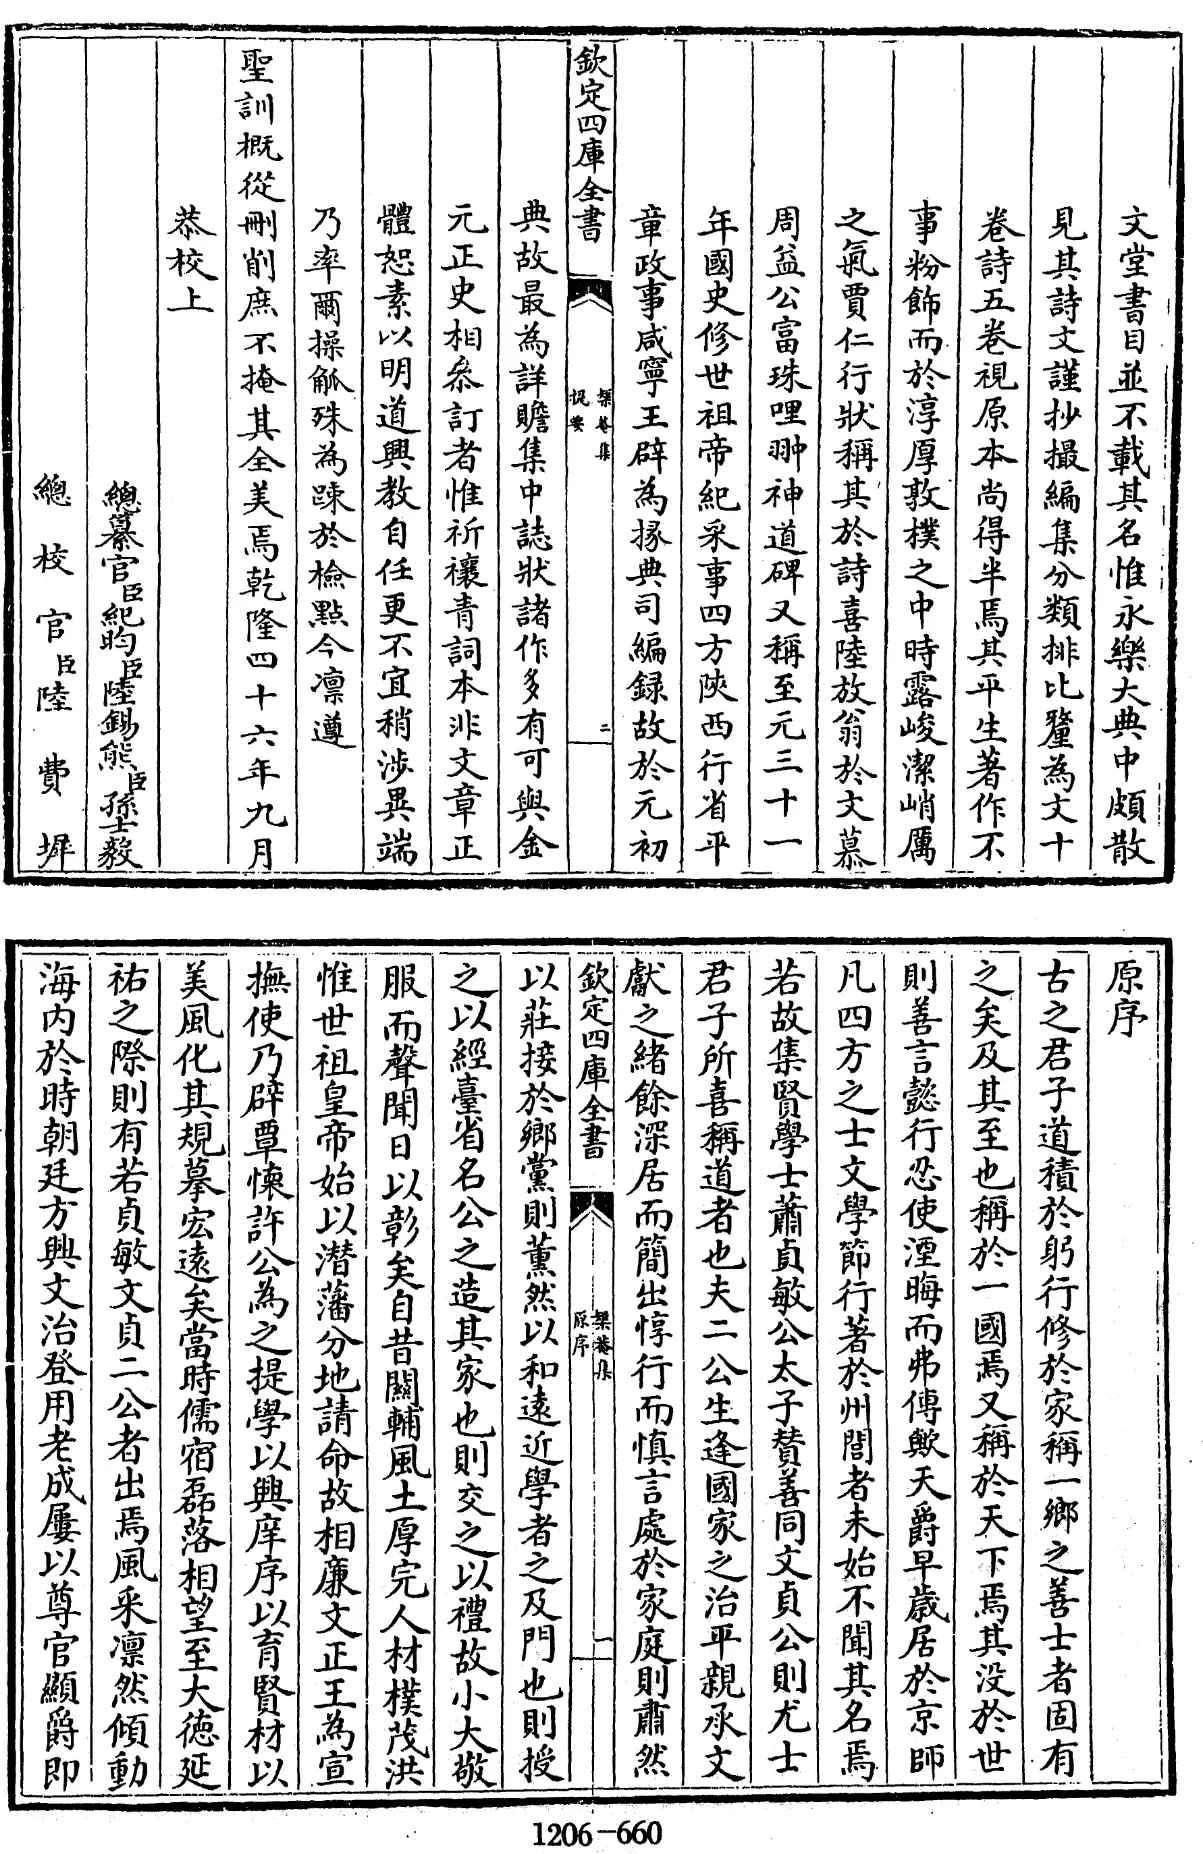 文堂書目並不載其名惟永樂大典中頗散
見其詩文謹抄撮編集分類排比釐為文十
卷詩五卷視原本尚得半焉其平生著作不
事粉飾而於淳厚敦樸之中時露峻潔峭厲
之氣賈仁行狀稱其於詩喜陸放翁於文慕
周益公富珠哩翀神道碑又稱至元三十一
年國史修世祖帝紀采事四方陝西行省平
章政事咸寧王辟為掾典司編録故於元初
欽定四庫全書
榘菴集
提要
二
典故最為詳贍集中誌狀諸作多有可與金
元正史相叅訂者惟祈禳青詞本非文章正
體恕素以明道興教自任更不宜稍涉異端
乃率爾操觚殊為踈於檢點今凛遵
聖訓概從刪削庶不掩其全美焉乾隆四十六年九月
恭校上
總纂官臣紀昀臣陸錫熊臣孫士毅
總校官臣陸費墀
原序
古之君子道積於躬行修於家稱一鄉之善士者固有
之矣及其至也稱於一國焉又稱於天下焉其没於世
則善言懿行忍使湮晦而弗傳歟天爵早歲居於京師
凡四方之士文學節行著於州閭者未始不聞其名焉
若故集賢學士蕭貞敏公太子賛善同文貞公則尤士
君子所喜稱道者也夫二公生逢國家之治平親承文
獻之緒餘深居而簡出惇行而慎言處於家庭則肅然
欽定四庫全書
榘菴集
原序
一
以莊接於鄉黨則薰然以和遠近學者之及門也則授
之以經臺省名公之造其家也則交之以禮故小大敬
服而聲聞日以彰矣自昔關輔風土厚完人材樸茂洪
惟世祖皇帝始以潛藩分地請命故相廉文正王為宣
撫使乃辟覃懐許公為之提學以興庠序以育賢材以
美風化其規摹宏遠矣當時儒宿磊落相望至大徳延
祐之際則有若貞敏文貞二公者出焉風采凛然傾動
海内於時朝廷方興文治登用老成屢以尊官顯爵即
1206-660